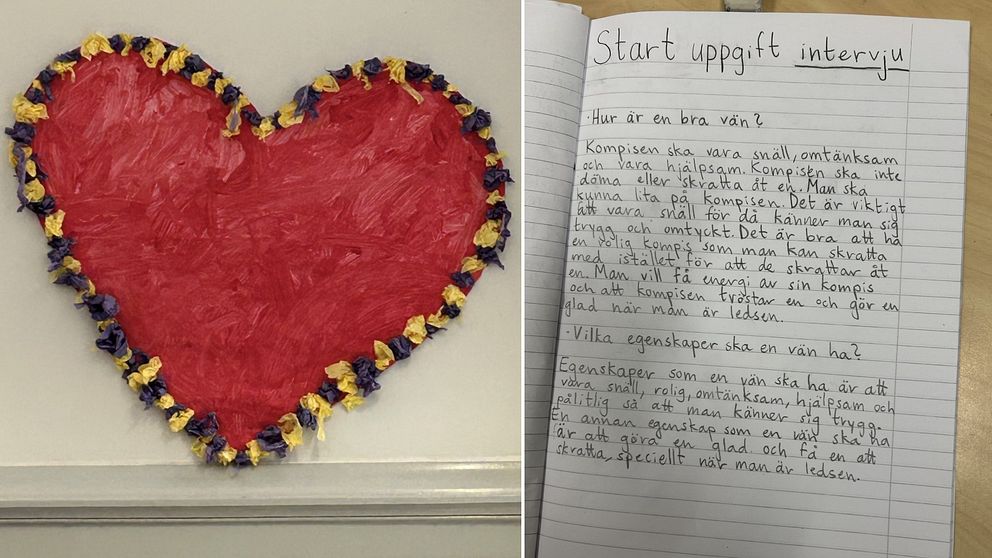 Start uppgift intervju
·Hur är en bra vän?
Kompisen ska vara snäll, omtänksam
och vara hjälpsam. Kompisen ska inte
döma eller skratta åt en. Man ska
kunna lita på kompisen. Det är viktigt
att vara snäll för då känner man sig
trygg och omtyckt. Det är bra att ha
en rolig kompis som man kan skratta
med istället för att de skrattar åt
en. Man vill få energi av sin kompis
och att kompisen tröstar en och gör en
glad när man är ledsen.
·Vilka egenskaper ska en vän ha?
Egenskaper som en vän ska ha är att
vara snäll, rolig, omtänksam, hjälpsam och
pålitlig så att man känner sig trygg.
En annan egenskap som en vän ska ha
är att göra en glad och få en att
skratta, speciellt när man är ledsen.